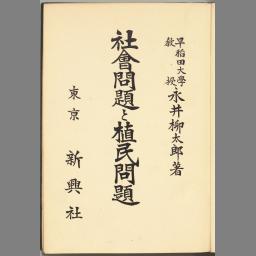 早稻田大學教授 永井柳太郎著
社會問題と植民問題
東京 新興社